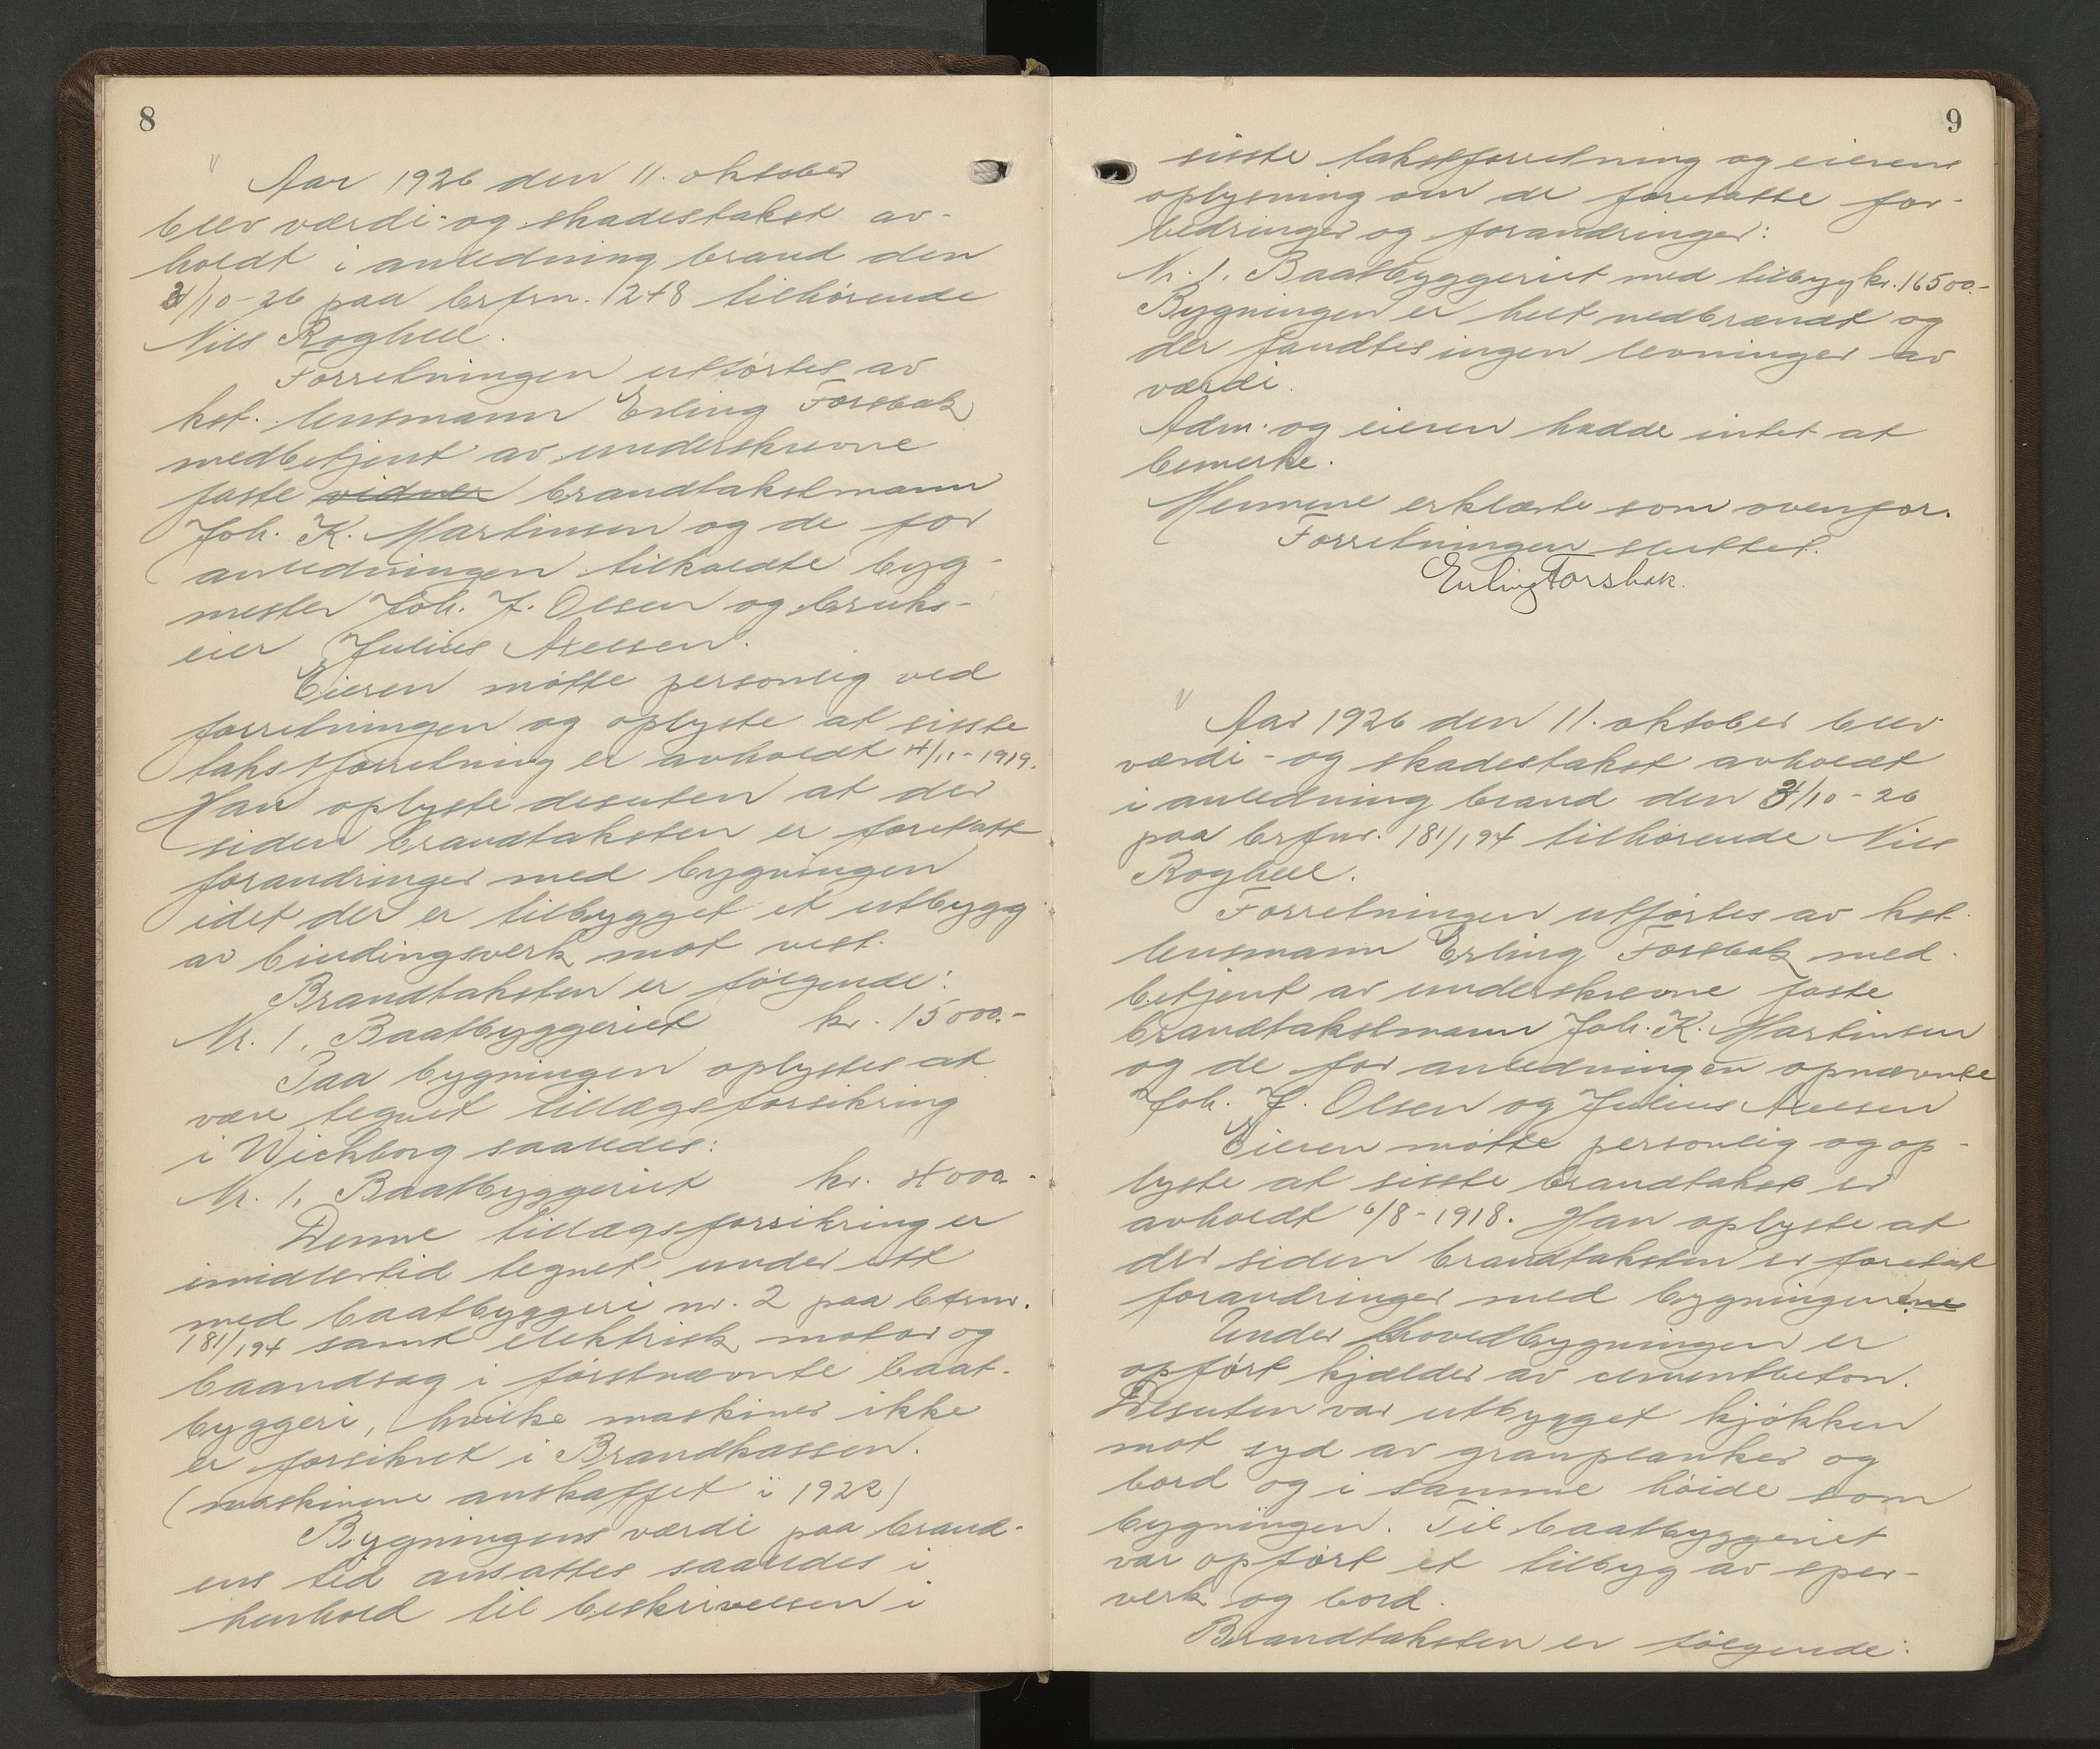 8
Aar 1926 den 11. oktober
blev værdi- og skadestakst av-
holdt i anledning brand den
3/10-26 paa brfrn. 1248 tilhørende
Nils Roghell.
Forretningen utførtes av
kst. lensmann Erling Forsbak
medbetjent av underskrevne
faste vidner brandtakstmann
Joh. K. Martinsen og de for
anledningen tilkaldte byg-
mester Joh. J. Olsen og bruks-
eier Julius Axelsen.
Eieren møtte personlig ved
forretningen og oplyste at sisste
takstforretning er avholdt 4/11-1919.
Han oplyste desuten at der
siden brandtaksten er foretatt
forandringer med bygningen
idet der er tilbygget et utbygg
av bindingsverk mot vest.
Brandtaksten er følgende:
Nr. 1. Baatbyggeriet kr. 15000.-
Paa bygningen oplystes at
være tegnet tillægsforsikring
i Wichborg saaledes:
Nr. 1. Baatbyggeriet kr. 4000.-
Denne tillægsforsikring er
imidlertid tegnet under ett
med baatbyggeri nr. 2 paa bfrnr.
181/194 samt elektrisk motor og
baandsag i førstnævnte baat-
byggeri, hvilke maskiner ikke
er forsikret i Brandkassen.
(maskinene anskaffet i 1922)
Bygningens værdi paa brand-
ens tid ansattes saaledes i
henhold til beskrivelsen i
9
sisste takstforretning og eierens
oplysning om de foretatte for-
bedringer og forandringer:
Nr. 1. Baatbyggeriet med tilbygg kr. 16500.-
Bygningen er helt nedbrændt og
der fandtes ingen levninger av
værdi.
Adm. og eieren hadde intet at
bemerke.
Mennene erklærte som ovenfor.
Forretningen sluttet.
Erling Forsbak.
Aar 1926 den 11. oktober blev
værdi- og skadestakst avholdt
i anledning brand den 3/10-26
paa brfnr. 181/194 tilhørende Nils
Roghell.
Forretningen utførtes av kst.
lensmann Erling Forsbak med-
betjent av underskrevne faste
brandtakstmann Joh. K. Martinsen
og de for anledningen opnævnte
Joh. J. Olsen og Julius Axelsen
Eieren møtte personlig og op-
lyste at sisste brandtakst er
avholdt 6/8-1918. Han oplyste at
der siden brandtaksten er foretat
forandringer med bygningene
Under hovedbygningen er
opført kjælder av cementbeton.
Desuten var utbygget kjøkken
mot syd av granplanker og
bord og i samme høide som
bygningen. Til baatbyggeriet
var opført et tilbyg av sper-
verk og bord.
Brandtaksten er følgende: